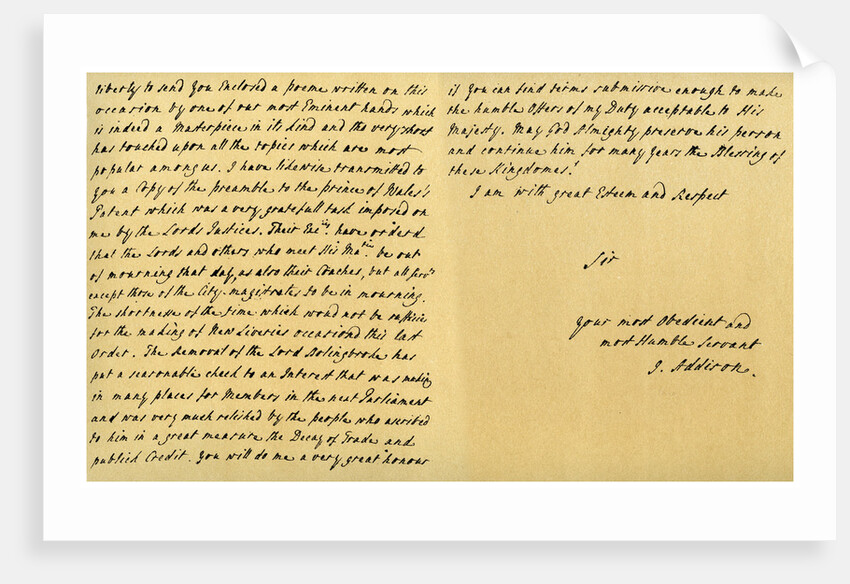 liberty to send you Enclosed a poeme written on this
occasion by one of our most Eminent hands which
is indeed a Masterpiece in its kind and tho very short
has touched upon all the topics which are most
popular among us. I have likewise transmitted to
you a Copy of the preamble to the prince of Wales's
Patent which was a very gratefull task imposed on
me by the Lords Justices. Their Exc:ies have order'd
that the Lords and others who meet His Ma:tie be out
of mourning that day, as also their Coaches, but all serv:ts
except those of the City-magistrates to be in mourning.
The shortness of the time which woud not be sufficient
for the making of New Liveries occasiond this last
Order. The Removal of the Lord Bolingbroke has
put a seasonable check to an Interest that was making
in many places for Members in the next Parliament
and was very much relished by the people who ascribed
to him in a great measure the Decay of Trade and
publick Credit. you will do me a very great honour
if you can find terms submissive enough to make
the humble Offers of my Duty acceptable to His
Majesty. May God Almighty preserve his person
and continue him for many years the Blessing of
these Kingdomes!
I am with great Esteem and Respect
Sir
your most Obedient and
most Humble Servant
J. Addison.